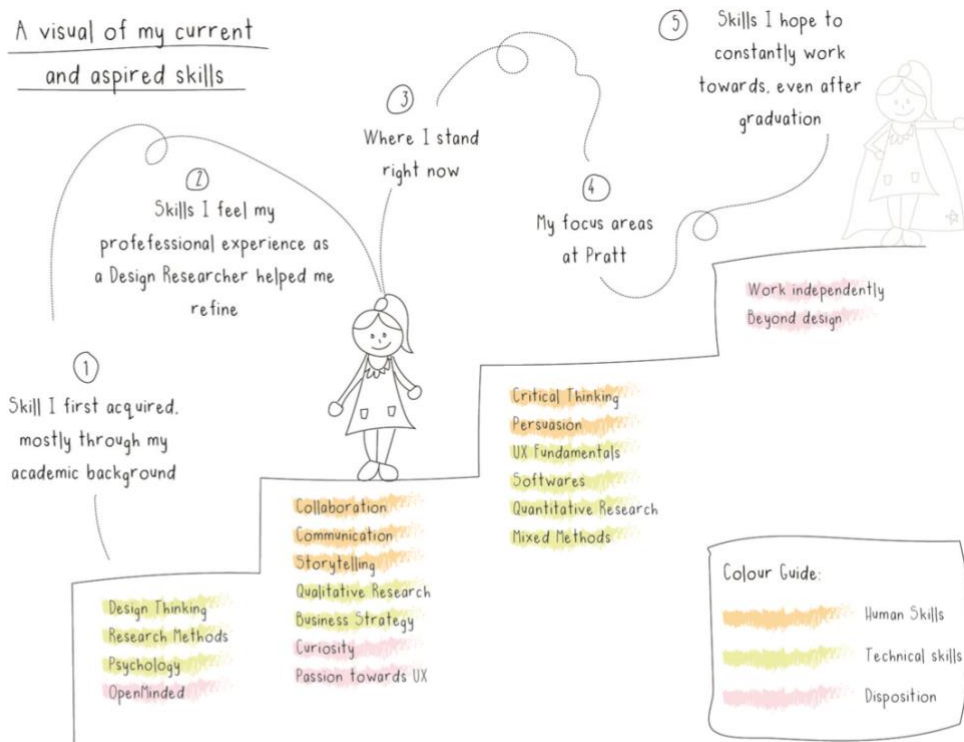 A visual of my current
and aspired skills
1
Skill I first acquired,
mostly through my
academic background
2
Skills I feel my
profefessional experience as
a Design Researcher helped me
refine
3
Where I stand
right now
4
My focus areas
at Pratt
5
Skills I hope to
constantly work
towards, even after
graduation
Design Thinking
Research Methods
Psychology
OpenMinded
Collaboration
Communication
Storytelling
Qualitative Research
Business Strategy
Curiosity
Passion towards UX
Critical Thinking
Persuasion
UX Fundamentals
Softwares
Quantitative Research
Mixed Methods
Work independently
Beyond design
Colour Guide:
Human Skills
Technical skills
Disposition